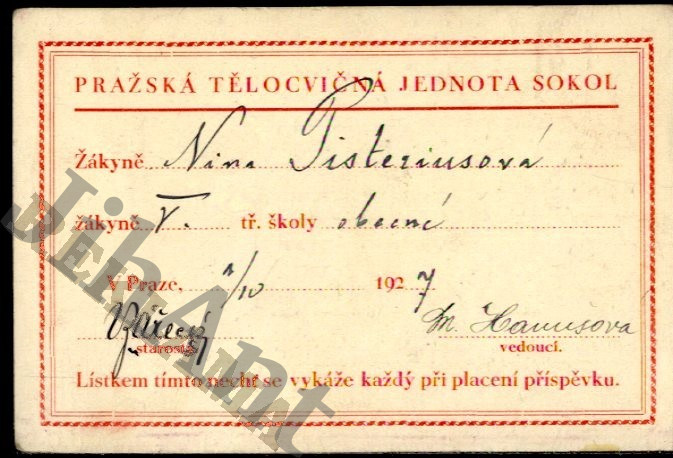 PRAŽSKÁ TĚLOCVIČNÁ JEDNOTA SOKOL
Žákyně Nina Pisteriusová
žákyně V. tř. školy obecné
V Praze, 1/10 1927
M. Hanušova
starosta vedoucí.
Lístkem tímto nechť se vykáže každý při placení příspěvku.
JihoAnt